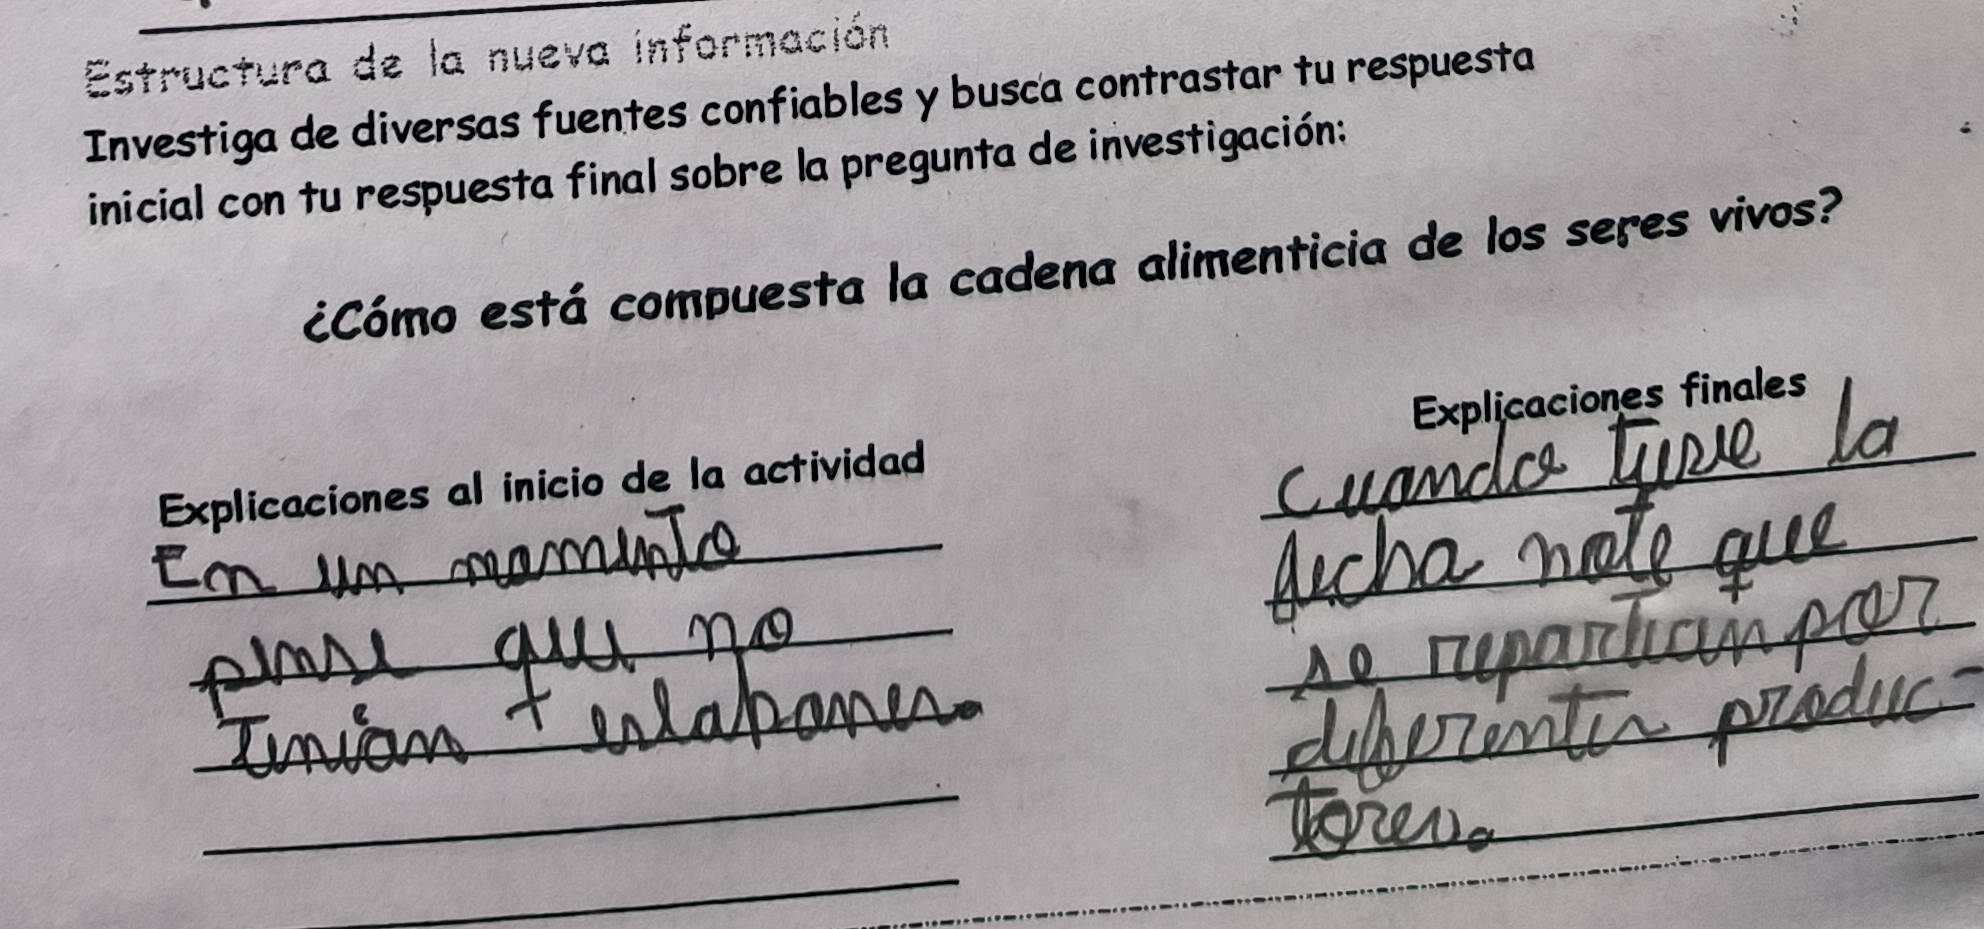 Estructura de la nueva información
Investiga de diversas fuentes confiables y busca contrastar tu respuesta
inicial con tu respuesta final sobre la pregunta de investigación:
¿Cómo está compuesta la cadena alimenticia de los seres vivos?
Explicaciones al inicio de la actividad
En un momento
pense que no
Tenian + eslabones.
Explicaciones finales
Cuando tuve la
fecha note que
se repartian por
diferentes produc-
tores.